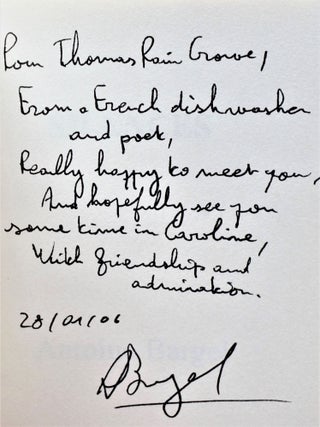 Pour Thomas Rain Crowe,
From a French dishwasher
and poet,
Really happy to meet you,
And hopefully see you
some time in Caroline,
With friendship and
admiration.
28/01/06
ABargel